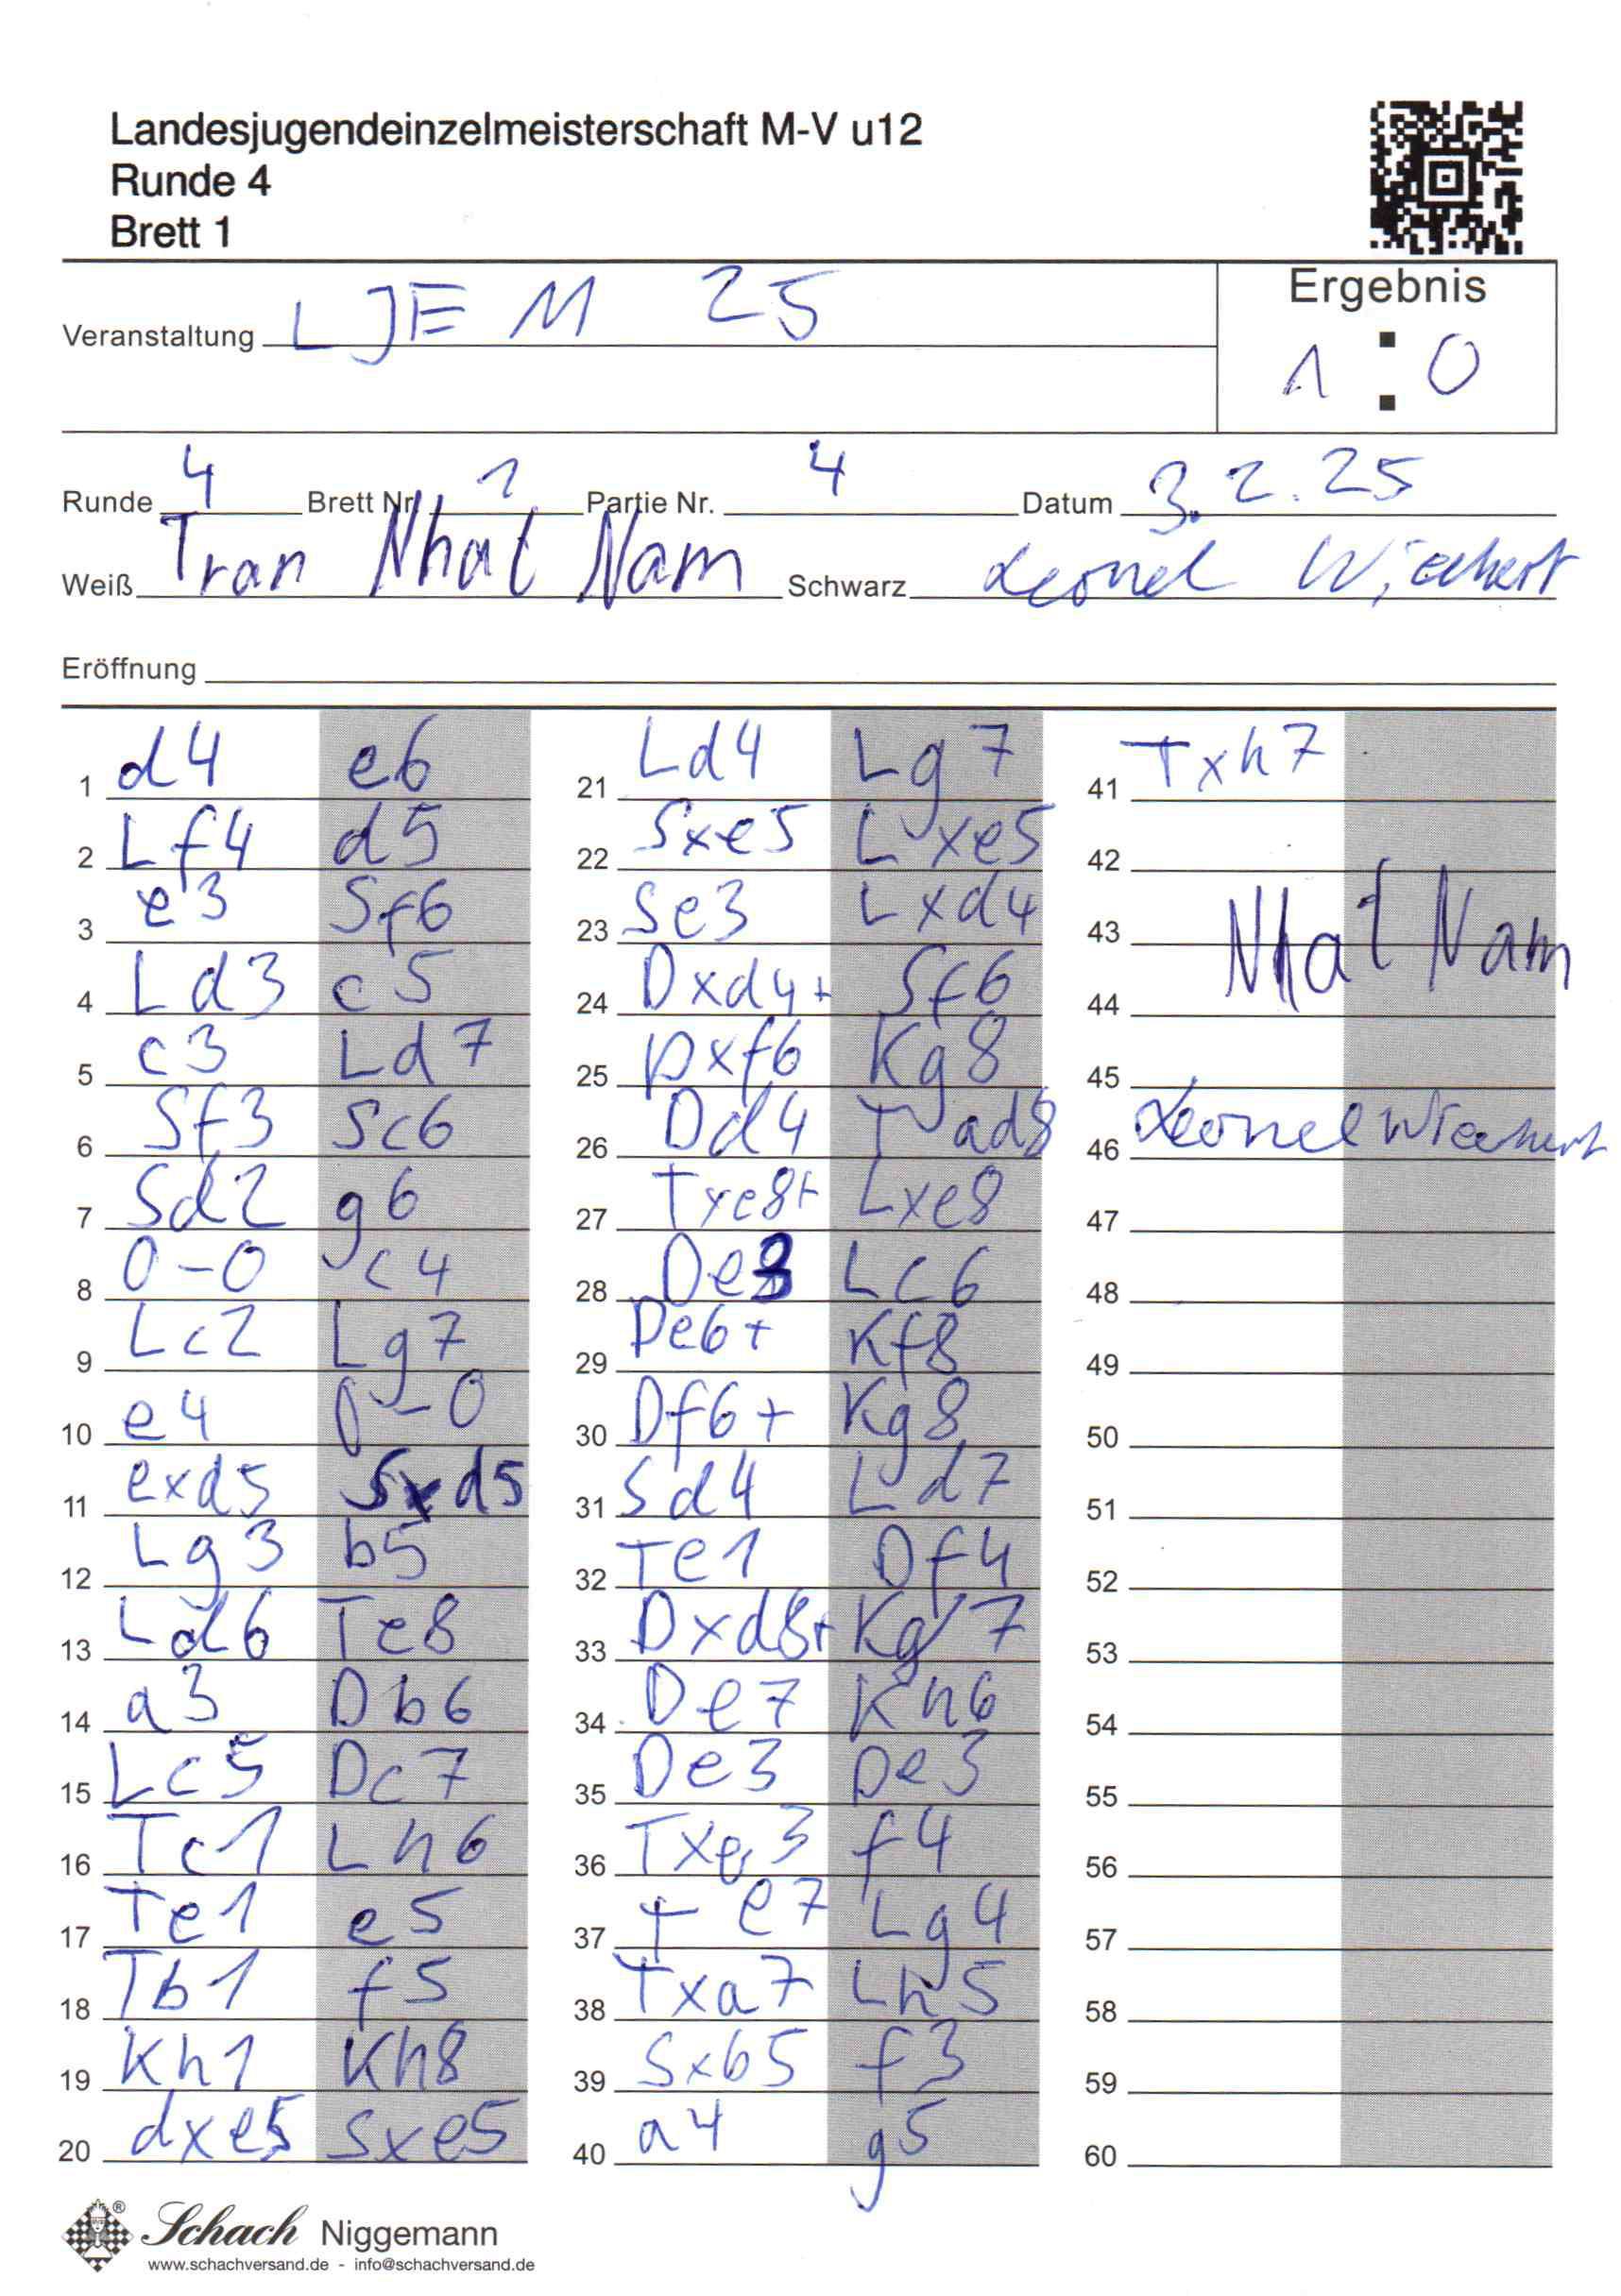 Landesjugendeinzelmeisterschaft M-V u12
Runde 4
Brett 1
Veranstaltung LJEM 25
Ergebnis
1 : 0
Runde 4 Brett Nr. 1 Partie Nr. 4 Datum 3.2.25
Weiß Tran Nhat Nam Schwarz Leonel Wiechert
Eröffnung
1 d4 e6
2 Lf4 d5
3 e3 Sf6
4 Ld3 c5
5 c3 Ld7
6 Sf3 Sc6
7 Sd2 g6
8 0-0 c4
9 Lc2 Lg7
10 e4 0-0
11 exd5 Sxd5
12 Lg3 b5
13 Ld6 Te8
14 a3 Db6
15 Lc5 Dc7
16 Tc1 Lh6
17 Te1 e5
18 Tb1 f5
19 Kh1 Kh8
20 dxe5 Sxe5
21 Ld4 Lg7
22 Sxe5 Lxe5
23 Se3 Lxd4
24 Dxd4+ Sf6
25 Dxf6 Kg8
26 Dd4 Tad8
27 Txe8+ Lxe8
28 De3 Lc6
29 De6+ Kf8
30 Df6+ Kg8
31 Sd4 Ld7
32 Te1 Df4
33 Dxd8+ Kg7
34 De7 Kh6
35 De3 De3
36 Txe3 f4
37 Te7 Lg4
38 Txa7 Lh5
39 Sxb5 f3
40 a4 g5
41 Txh7
42
43 Nhat Nam
44
45
46 Leonel Wiechert
47
48
49
50
51
52
53
54
55
56
57
58
59
60
Schach Niggemann
www.schachversand.de - info@schachversand.de